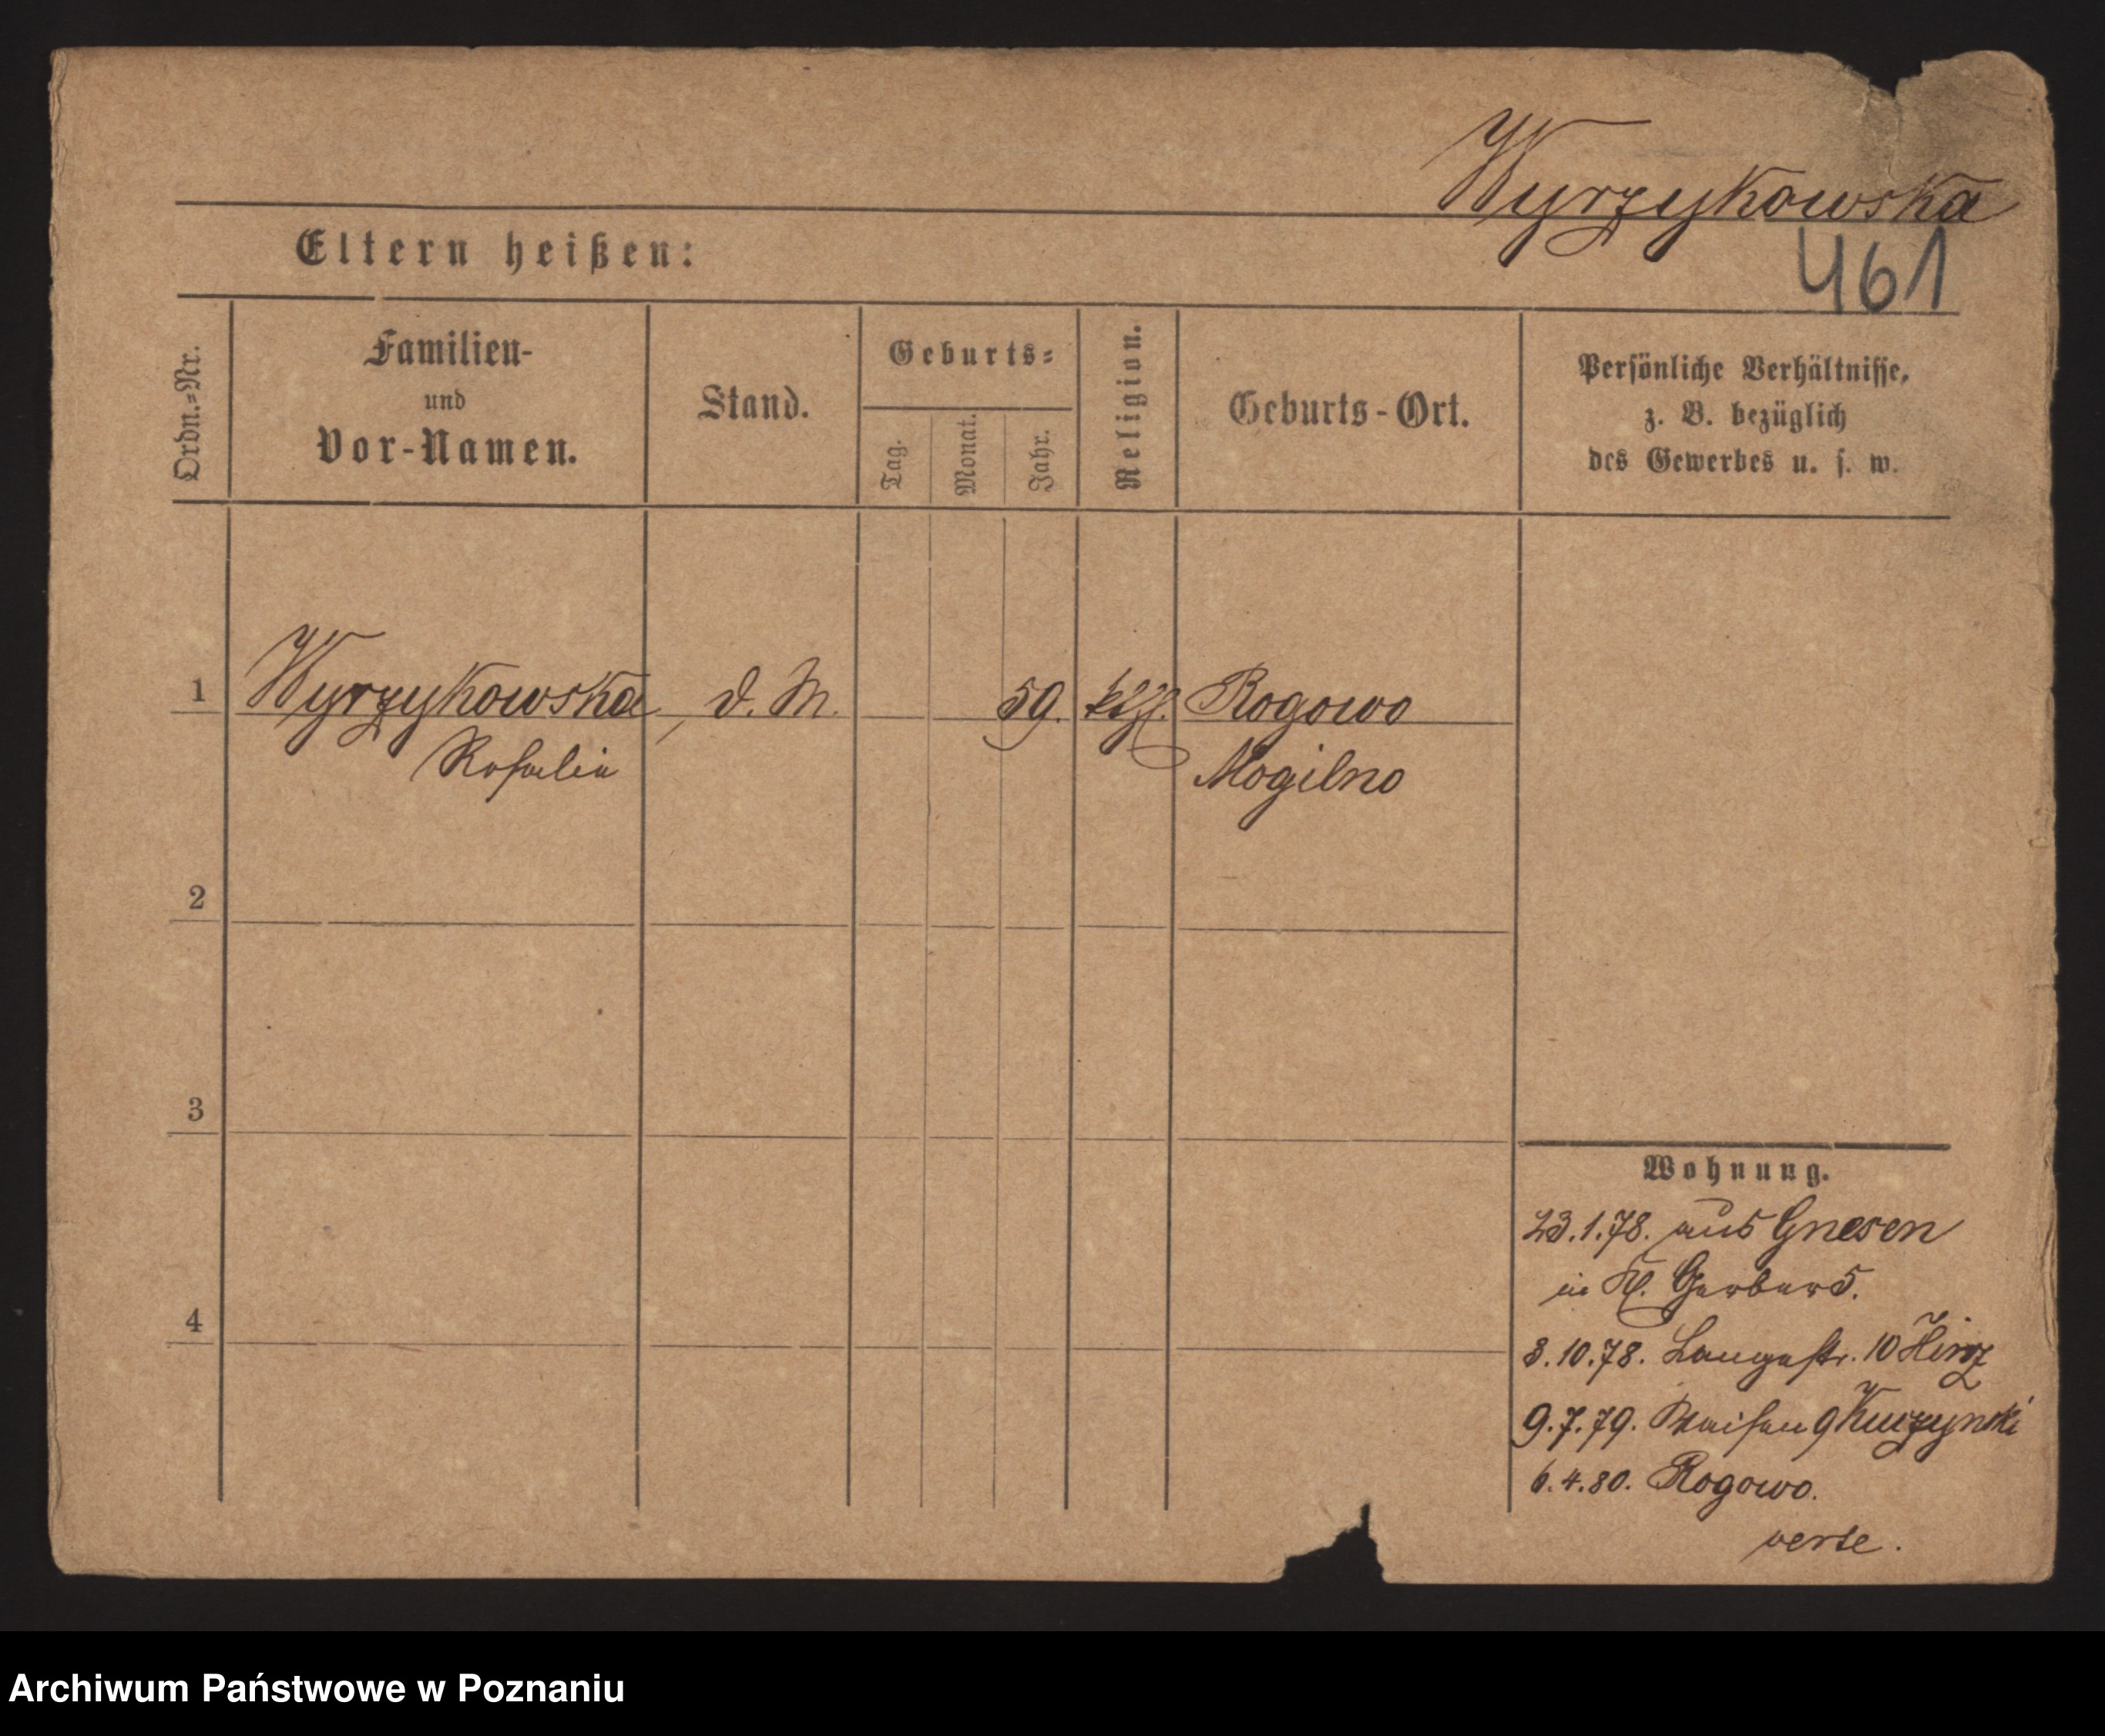 Wyrzykowska
461
Eltern heißen:
Ordn.=Nr.
Familien-
und
Vor-Namen.
Stand.
Geburts=
Tag.
Monat.
Jahr.
Religion.
Geburts-Ort.
Persönliche Verhältnisse,
z. B. bezüglich
des Gewerbes u. s. w.
1 Wyrzykowska, d. M. 59. kth. Rogowo
Rosalia Mogilno
2
3
4
Wohnung.
23.1.78. aus Gnesen
in Kl. Gerber 5.
3.10.78. Langestr. 10
9.7.79. Waisen 9
6.4.80. Rogowo.
verte.
Archiwum Państwowe w Poznaniu